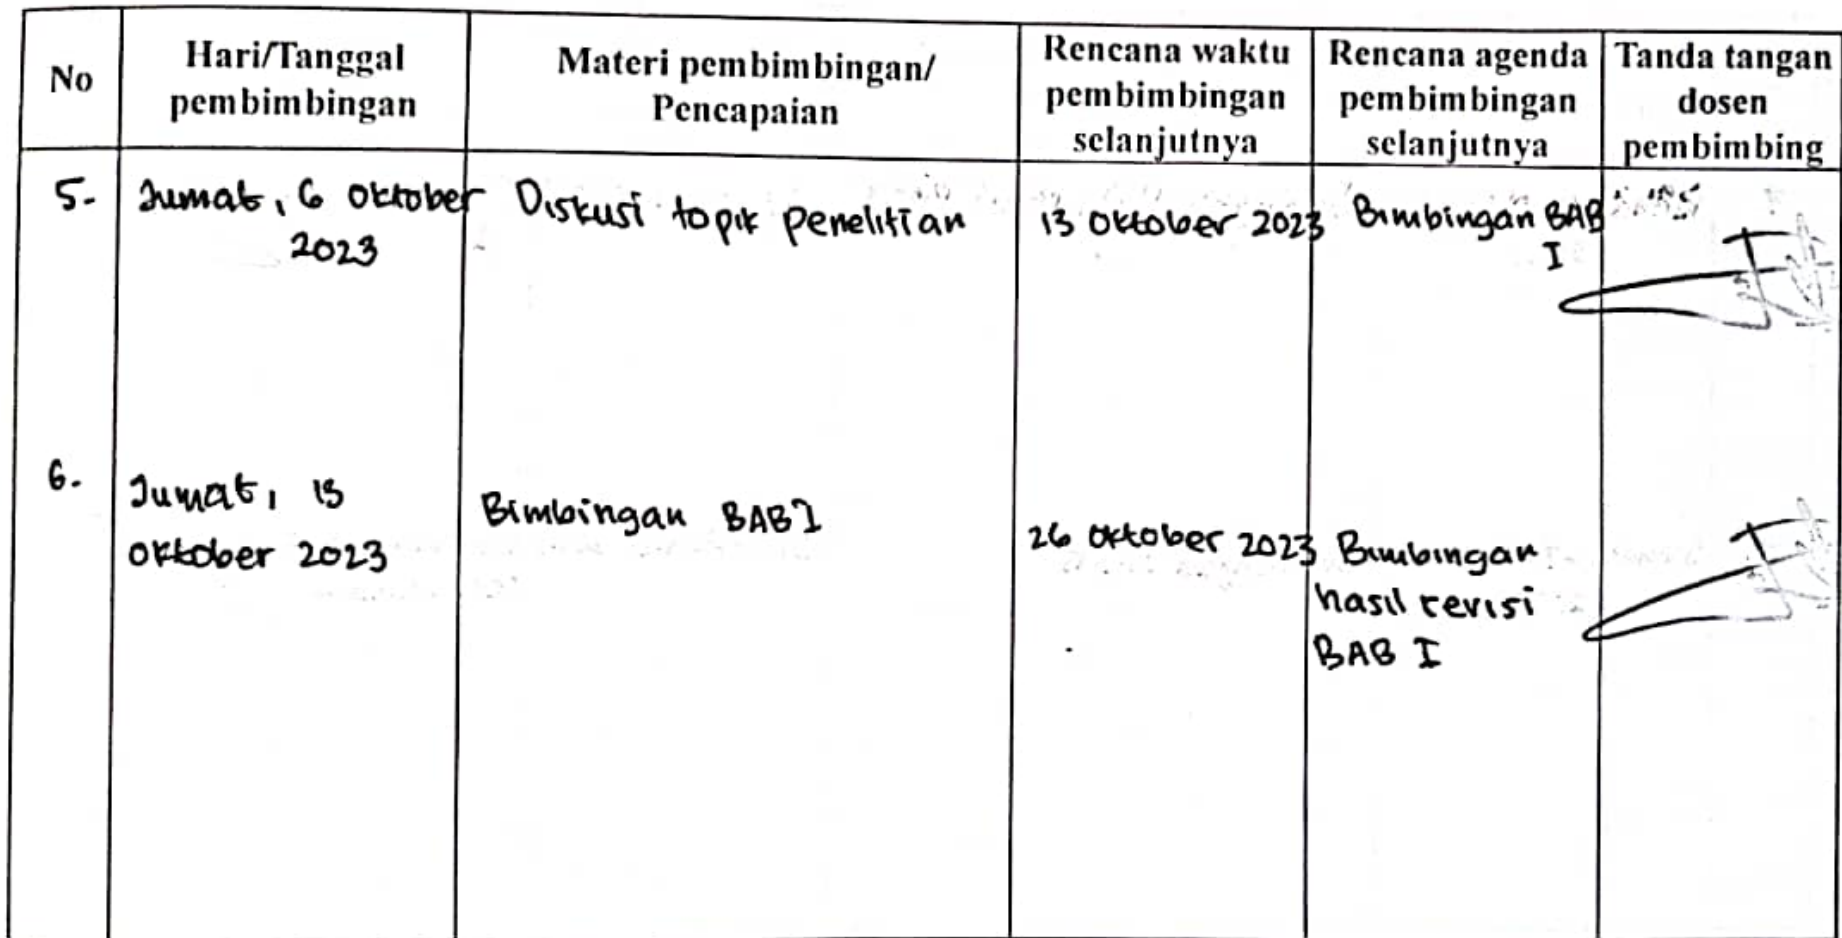 No
Hari/Tanggal
pembimbingan
Materi pembimbingan/
Pencapaian
Rencana waktu
pembimbingan
selanjutnya
Rencana agenda
pembimbingan
selanjutnya
Tanda tangan
dosen
pembimbing
5.
Jumat, 6 Oktober
2023
Diskusi topik penelitian
13 Oktober 2023
Bimbingan BAB
I
6.
Jumat, 13
Oktober 2023
Bimbingan BAB I
26 Oktober 2023
Bimbingan
hasil revisi
BAB I